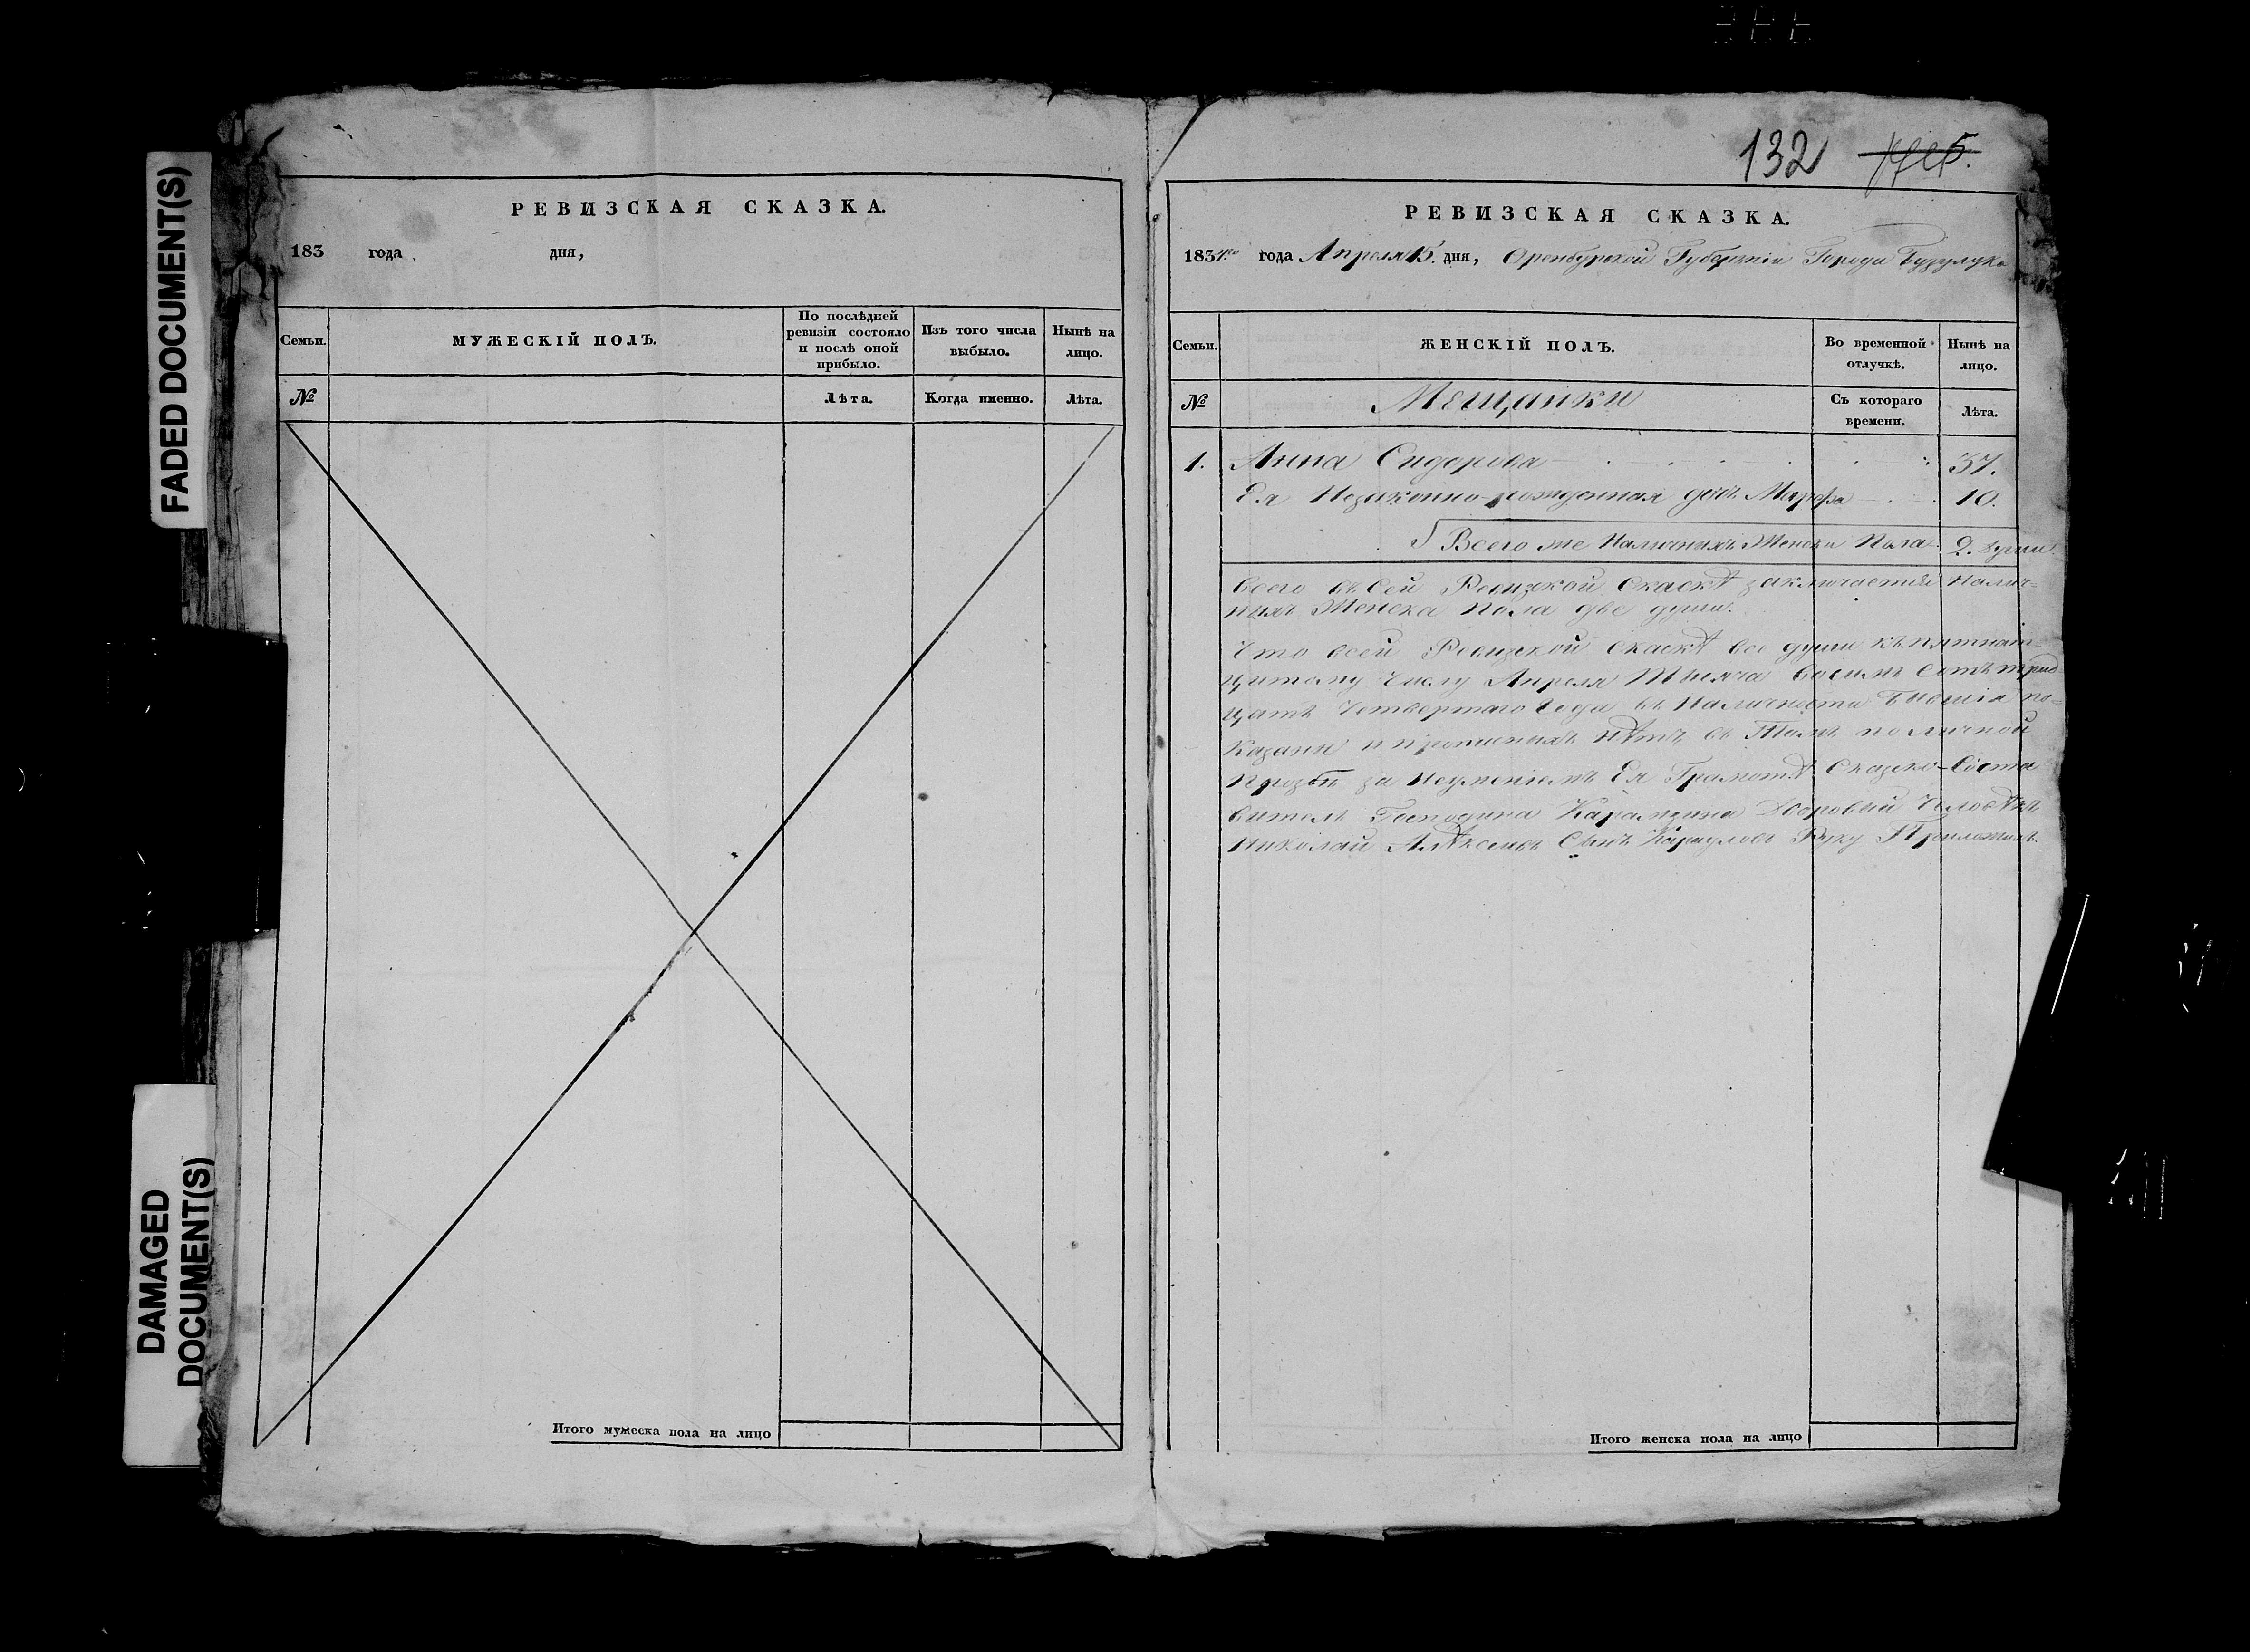 FADED DOCUMENT(S)
DAMAGED
DOCUMENT(S)
РЕВИЗСКАЯ СКАЗКА.
183 года дня,
Семьи.
МУЖЕСКІЙ ПОЛЪ.
По послѣдней ревизіи состояло и послѣ оной прибыло.
Изъ того числа выбыло.
Нынѣ на лицо.
№
Лѣта.
Когда именно.
Лѣта.
Итого мужеска пола на лицо
132
РЕВИЗСКАЯ СКАЗКА.
1834го года Апреля 15. дня, Оренбурской Губернiи Города Бузулука
Семьи.
ЖЕНСКІЙ ПОЛЪ.
Во временной отлучкѣ.
Нынѣ на лицо.
№
Мещанки
Съ котораго времени.
Лѣта.
1. Анна Сидорова 37.
Ея Незаконно-рожденная дочь Марфа 10.
Всего же Наличныхъ Женска Пола 2. души
Всего въ Сей Ревизкой Скаскѣ заключается Налич-
ныхъ Женска Пола две души.
Что всей Ревизской Скаскѣ все души къ пятнат-
цатому Числу Апреля Тысяча восимъ Сотъ трид-
цать Четвертаго Года въ Наличности Бывшiя по-
казаны и прописныхъ нѣтъ въ Томъ по личной
Прозбѣ за Неумениемъ Ея Грамотѣ Сказко-Соста
витель Господина Карамзина Дворовый Человѣкъ
Николай Алѣксеевъ Сынъ Руку Приложилъ.
Итого женска пола на лицо